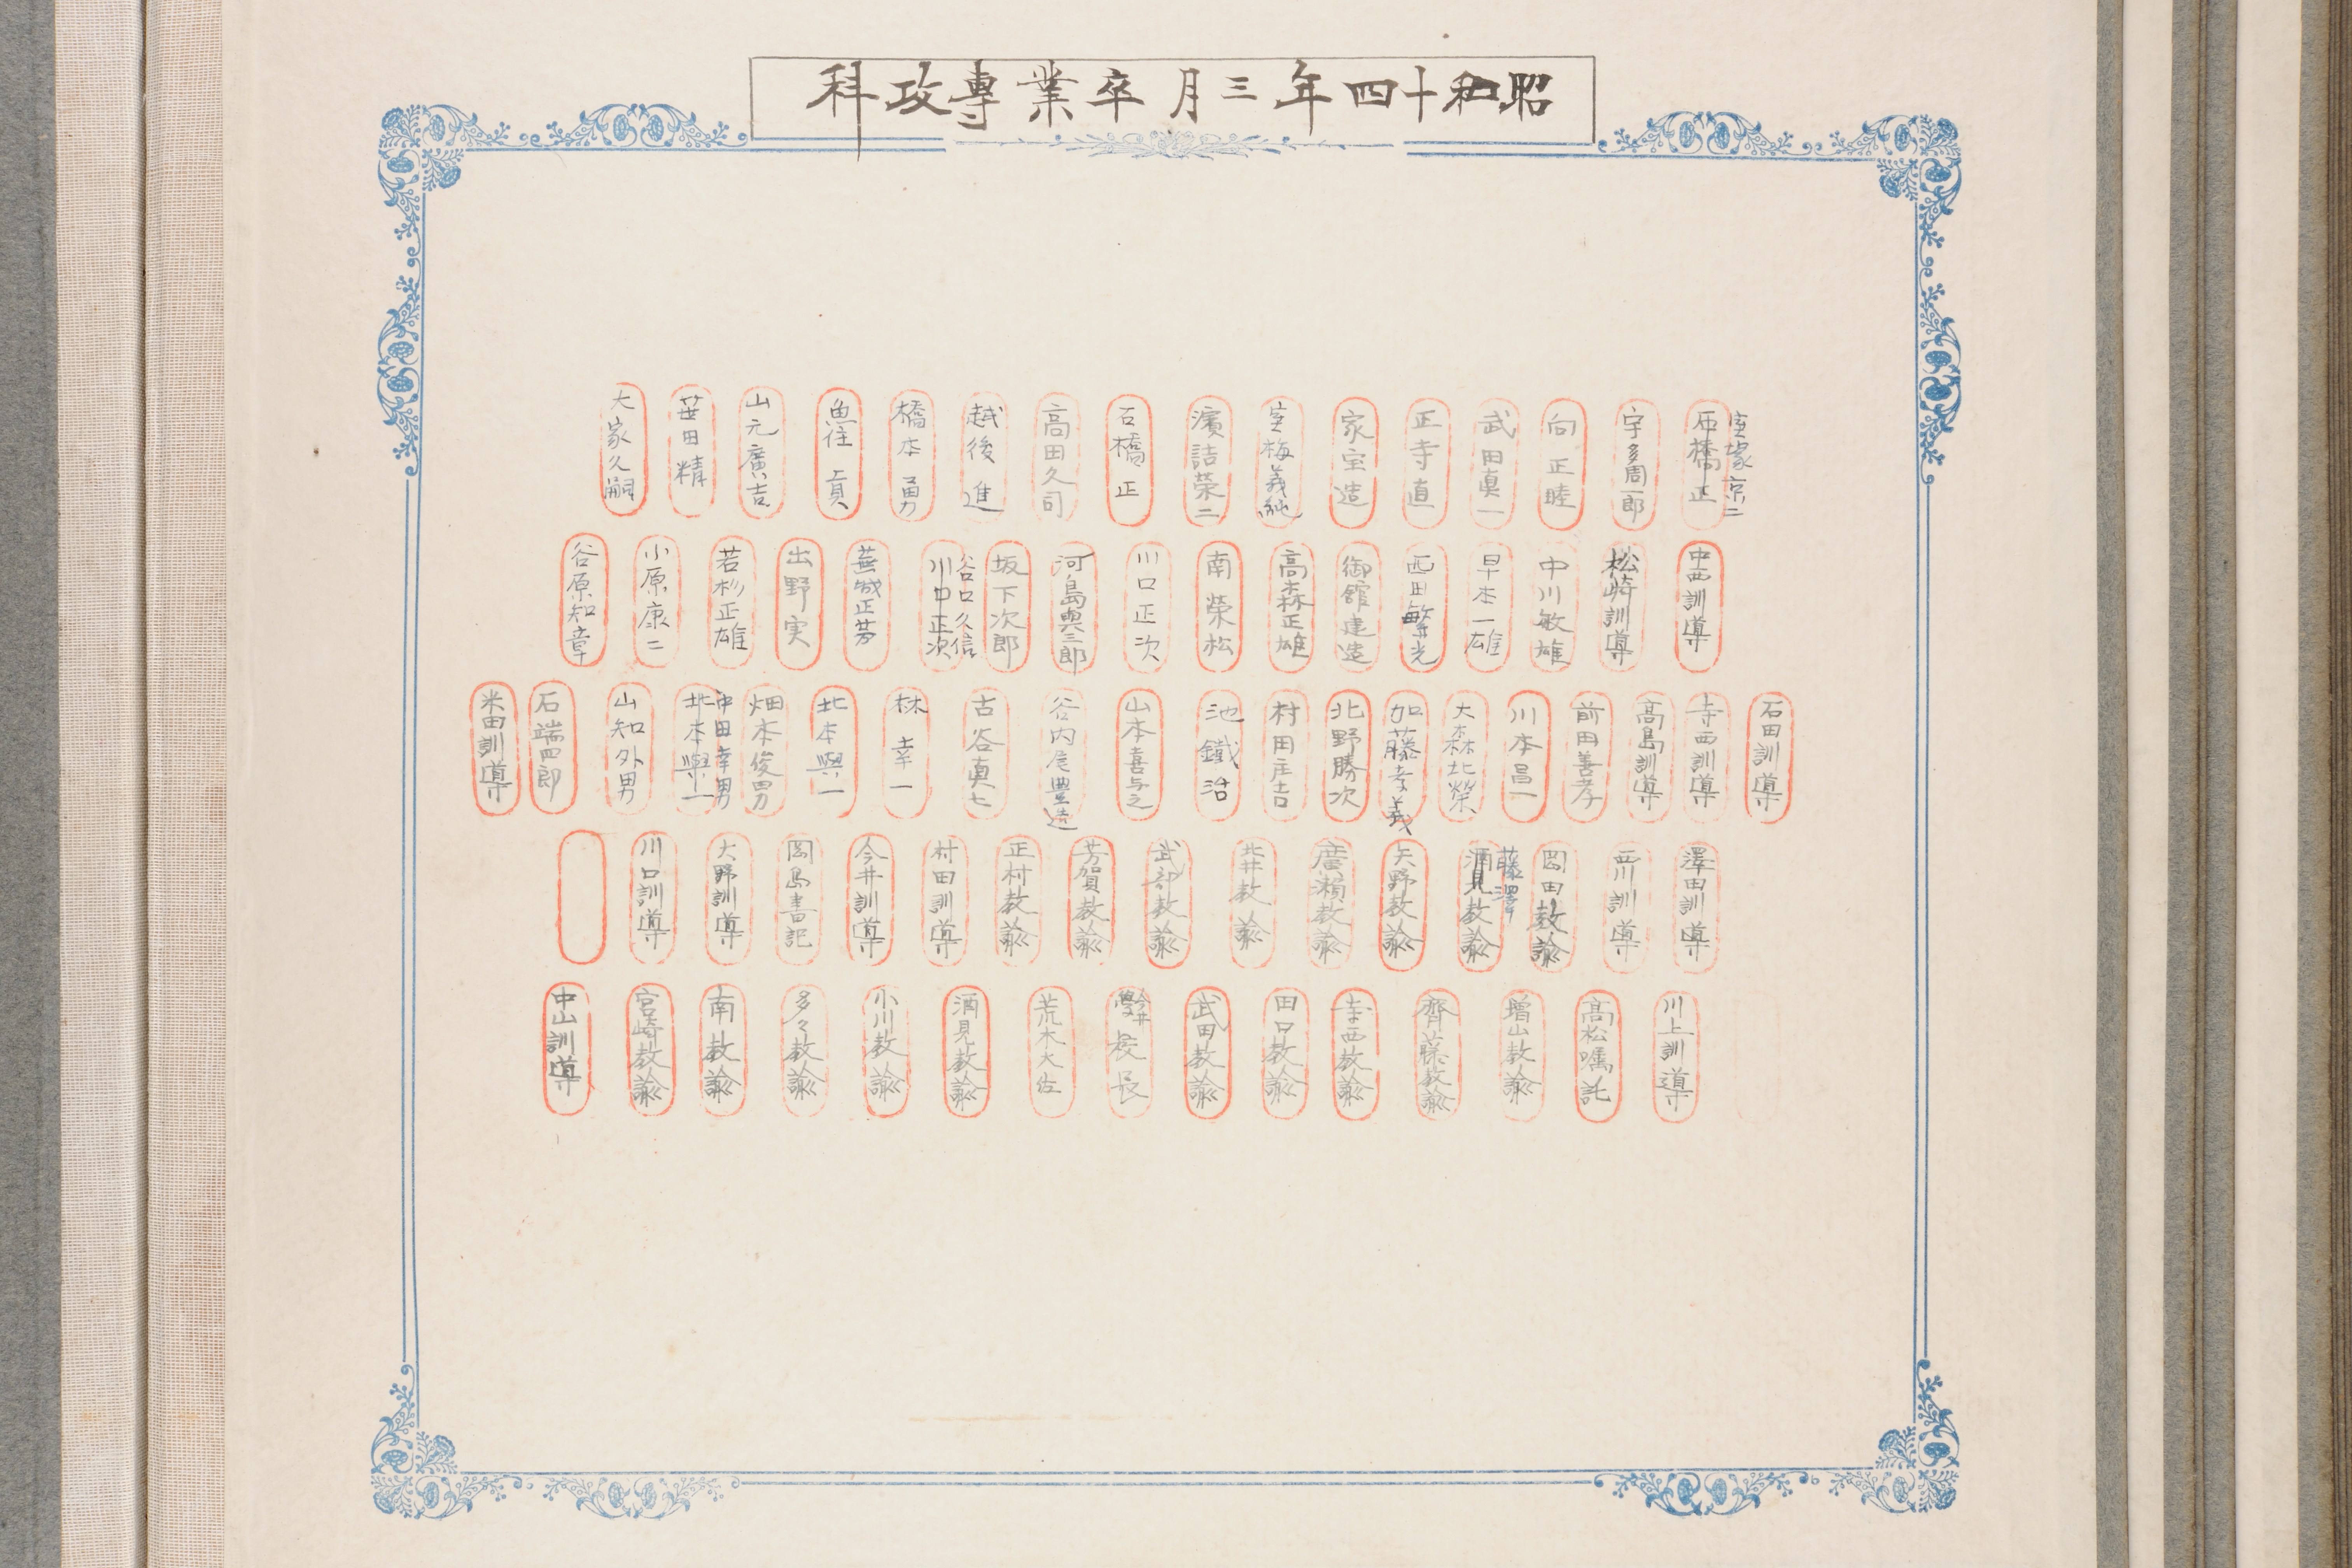 昭和十四年三月卒業專攻科
室塚宗二
石橋正
宇多周一郎
向正睦
武田眞一
正寺直
家宝造
室梅義純
濱詰荣二
石橋正
高田久司
越後進
橋本勇
魚住貞
山元廣吉
田精
大家久嗣
中西訓導
松崎訓導
中川敏雄
早本一雄
西田繁光
御舘建造
高森正雄
南荣松
川口正次
河島與三郎
坂下次郎
谷口久信
川中正次
蕪城正芳
出野実
若杉正雄
小原康二
谷原知章
石田訓導
寺西訓導
髙島訓導
前田善孝
川本昌一
大森北榮
加藤孝義
北野勝次
村田庄吉
池鐵治
山本喜与之
谷内尾豊造
古谷真七
林幸一
北本與一
畑本俊男
中田幸男
北本與一
山知外男
石端四郎
米田訓導
澤田訓導
西川訓導
岡田教諭
藤澤
酒見教諭
矢野教諭
廣瀬教諭
北井教諭
武部教諭
芳賀教諭
正村教諭
村田訓導
今井訓導
岡島書記
大野訓導
川口訓導
川上訓導
髙松嘱託
増山教諭
齊藤教諭
寺西教諭
田口教諭
武田教諭
校長
荒木大佐
酒見教諭
小川教諭
多々教諭
南教諭
宮崎教諭
中山訓導